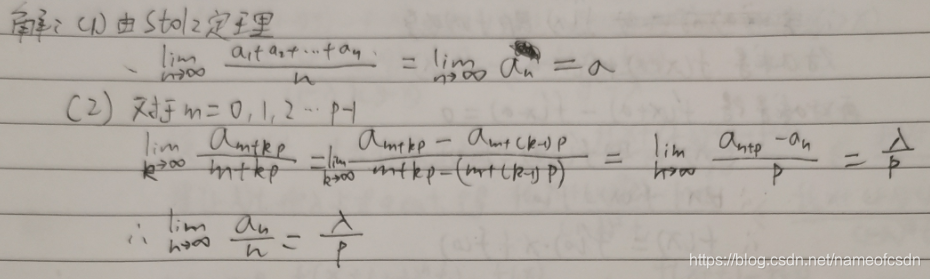 解:(1)由Stolz定理
∴ lim n→∞ (a₁+a₂+⋯+aₙ)/n = lim n→∞ aₙ = a
(2) 对于m=0,1,2⋯p-1
lim k→∞ a_{m+kp}/(m+kp) = lim k→∞ (a_{m+kp} - a_{m+(k-1)p})/(m+kp-(m+(k-1)p)) = lim n→∞ (a_{n+p} - aₙ)/p = λ/p
∴ lim n→∞ aₙ/n = λ/p
https://blog.csdn.net/nameofcsdn